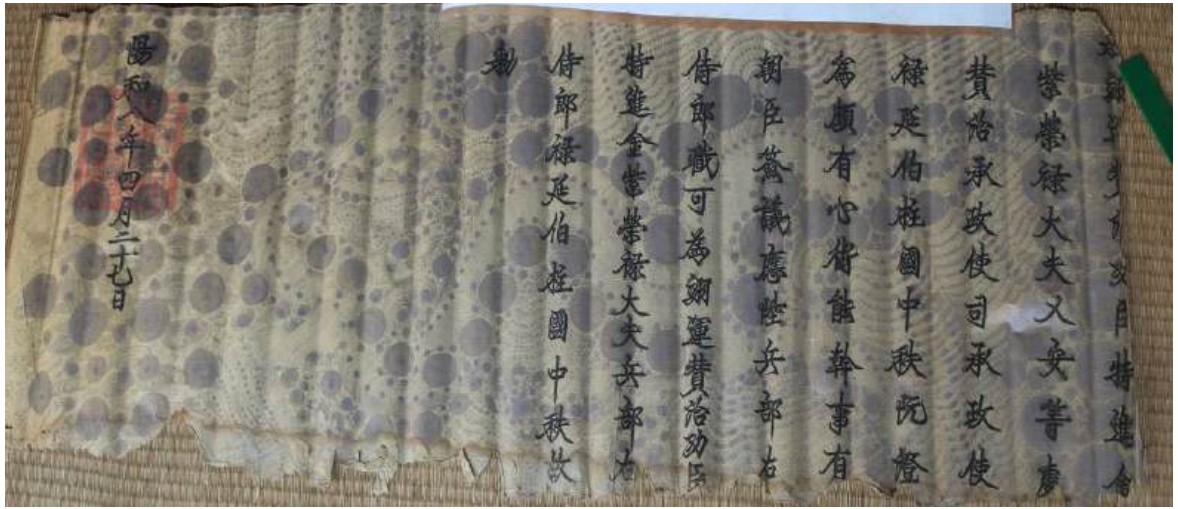 臣特進金
紫榮祿大夫乂安等處
賛治承政使司承政使
祿延伯柱國中秩阮燈
為頗有心術能幹事有
朝臣僉議應陞兵部右
侍郎職可為翊運賛治功臣
特進金紫榮祿大夫兵部右
侍郎祿延伯柱國中秩故
勑
陽和八年四月二十七日